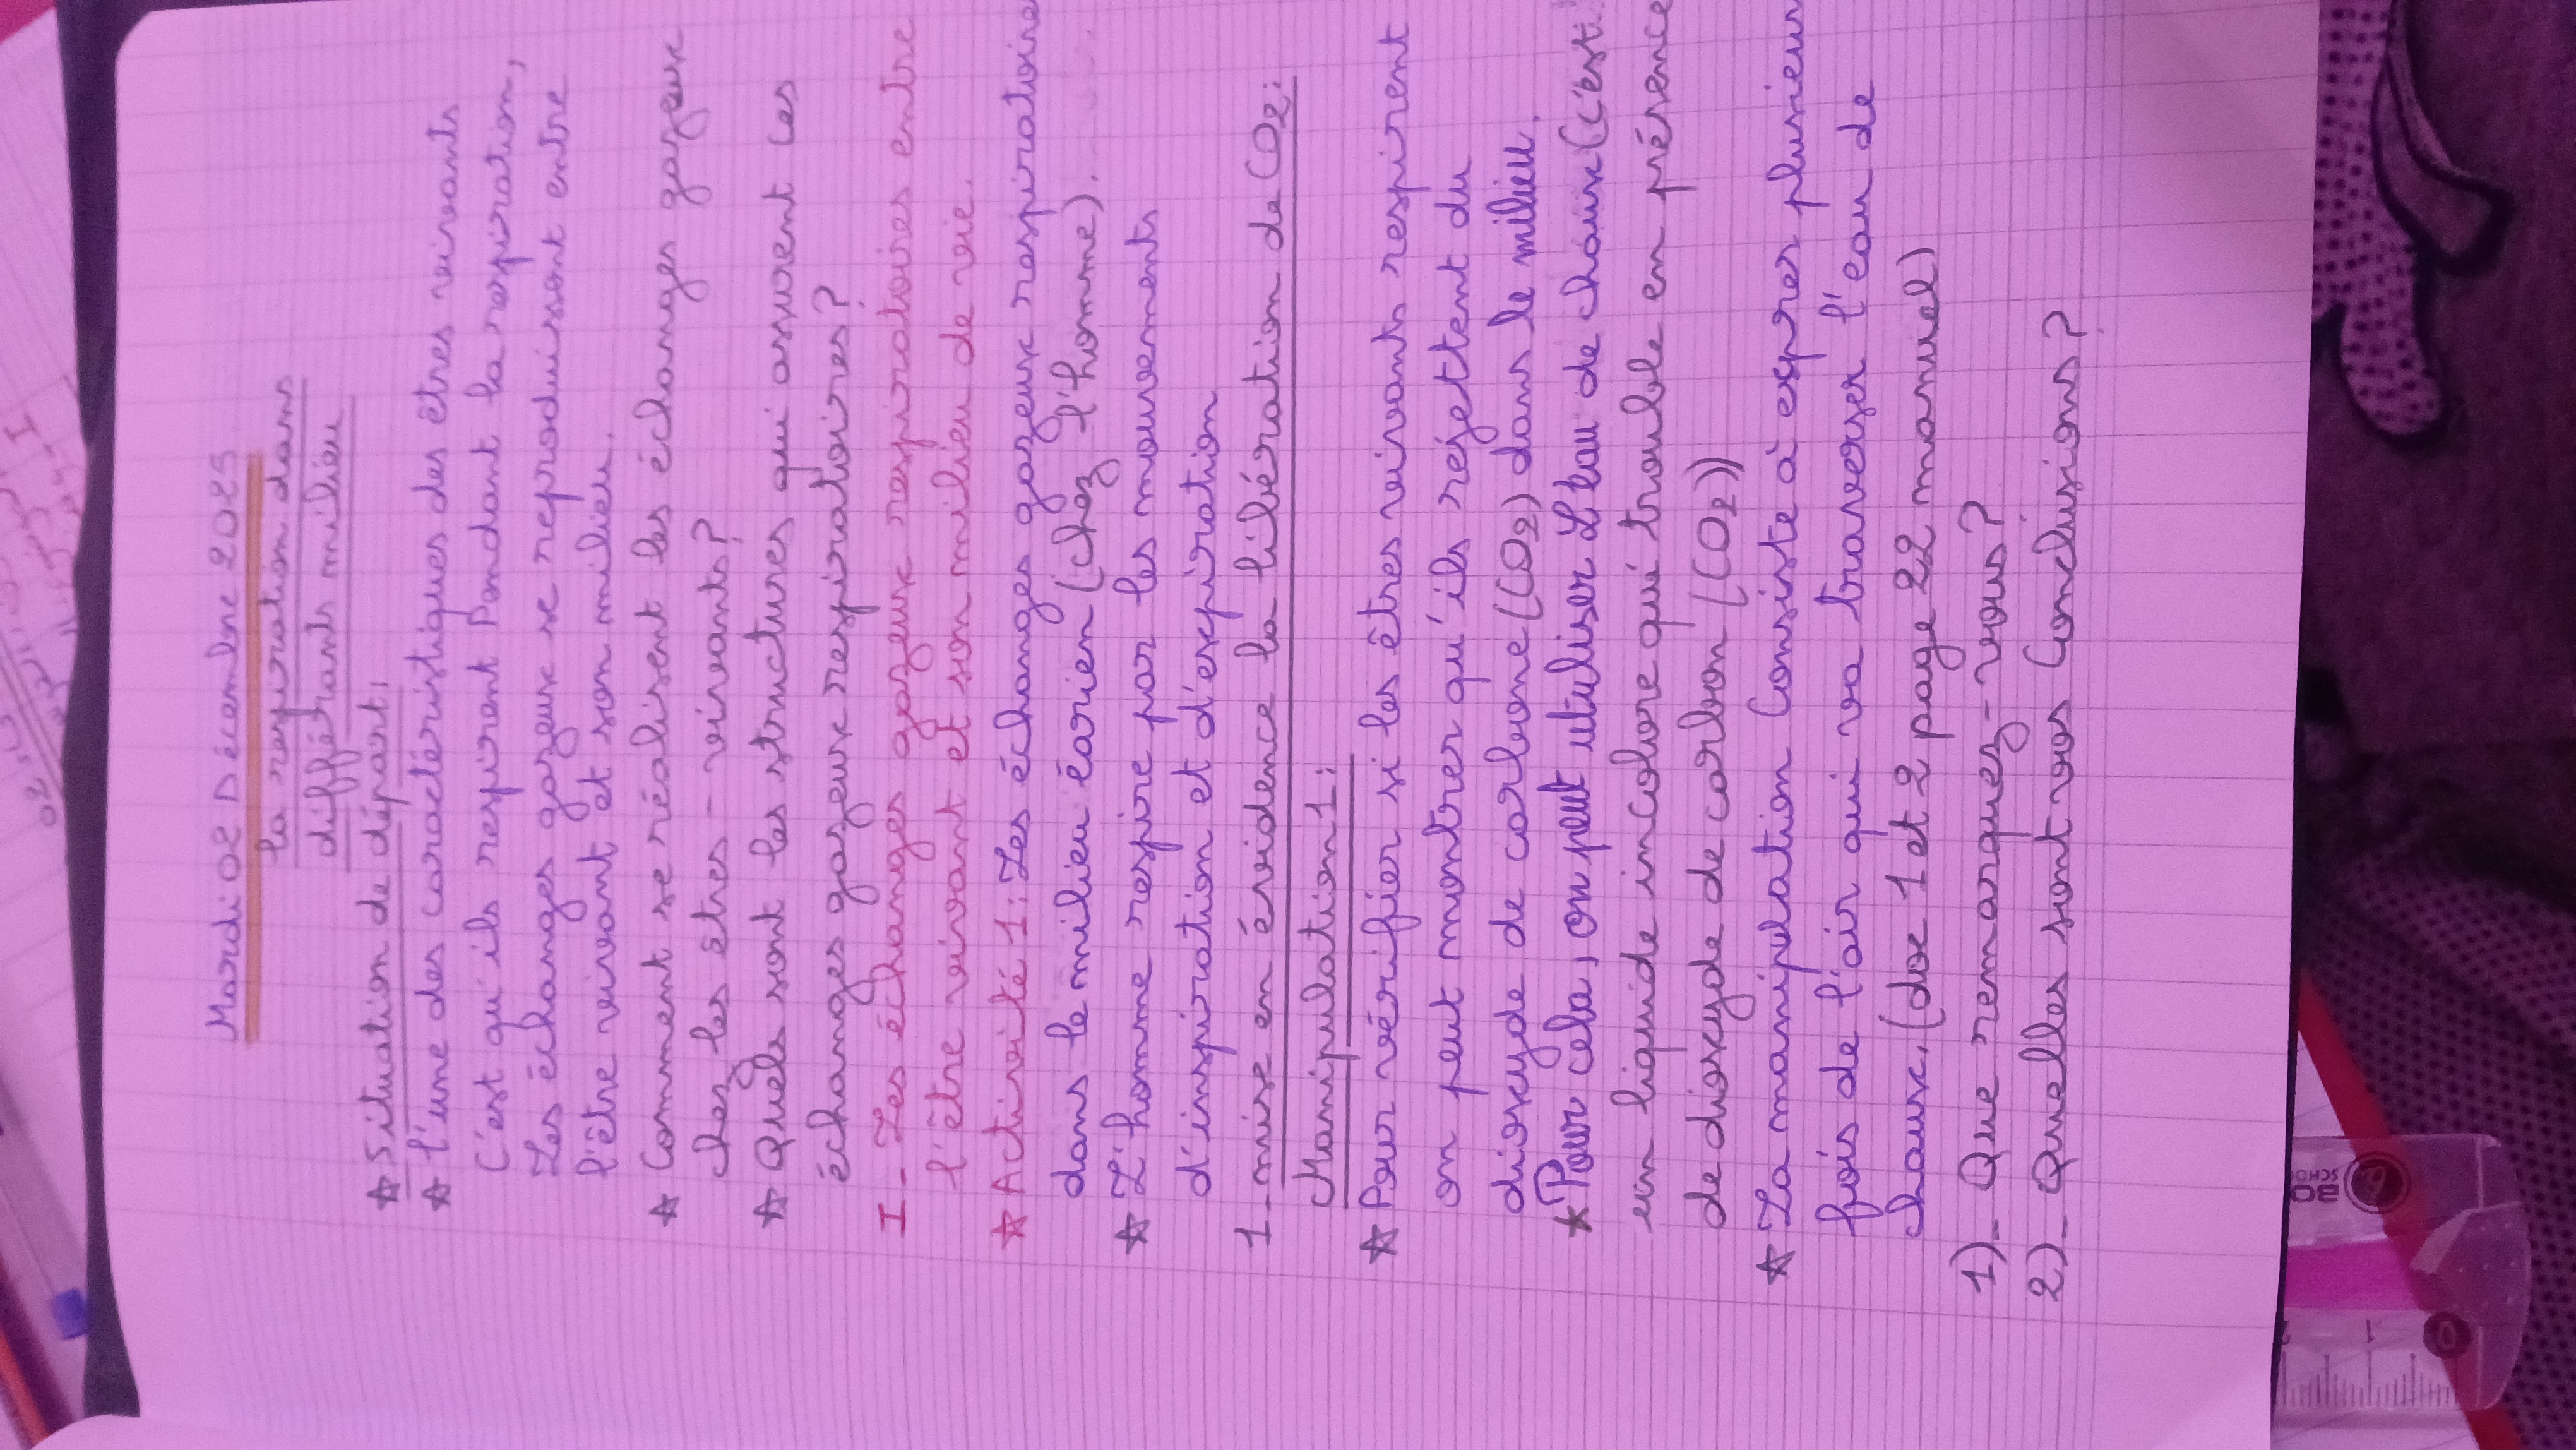 Mardi 02 Décembre 2025
la respiration dans
différants milieu
☆ Situation de départ:
☆ l'une des caractéristiques des êtres vivants
C'est qui ils respirent Pendant la respiration,
Les échanges gazeux se reproduissent entre
l'être vivant et son milieu.
☆ Comment se réalisent les échanges gazeux
chez les êtres-vivants?
☆ Quels sont les structures qui assurent ces
échanges gazeux respiratoires?
I - Les échanges gazeux respiratoires entre
l'être vivant et son milieu de vie.
☆ Activité 1: Les échanges gazeux respiratoire
dans le milieu éarien (chez l'homme).
☆ L'homme respire par les mouvements
d'inspiration et d'expiration
1 - mise en évidence la libération de CO2:
Manipulation 1:
☆ Pour vérifier si les êtres vivants respirent
on peut montrer qu'ils rejettent du
dioxyde de carbone (CO2) dans le milieu.
☆ Pour cela, on peut utuliser L'eau de chaux (c'est
un liquide incolore qui trouble en présence
de dioxyde de carbon (CO2))
☆ La manipulation Consiste à exprer plusieur
fois de l'air qui va traverser l'eau de
chaux. (doc 1 et 2 page 22 manuel)
1)- Que remarquez-vous?
2)- Quelles sont vos Conclusions?
30
SCHO
0 1 2